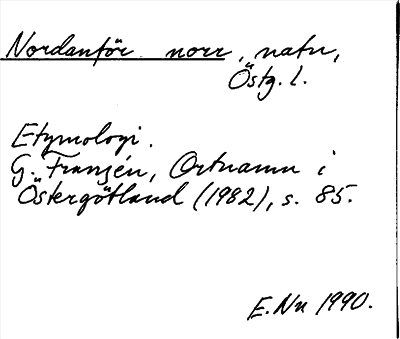 Nordanför norr, natn,
Östg. l.
Etymologi.
G. Franzén, Ortnamn i
Östergötland (1982), s. 85.
E.Nn 1990.